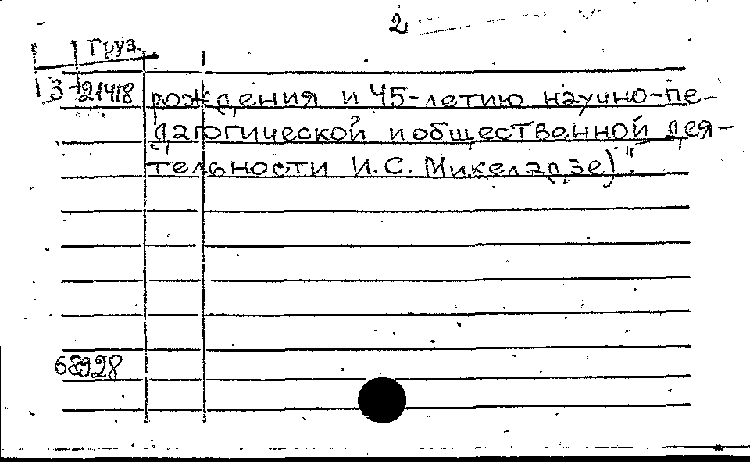 2
Груз.
3-21418 рождения и 45-летию научно-пе-
дагогической и общественной дея-
тельности И.С. Микеладзе)".
68928